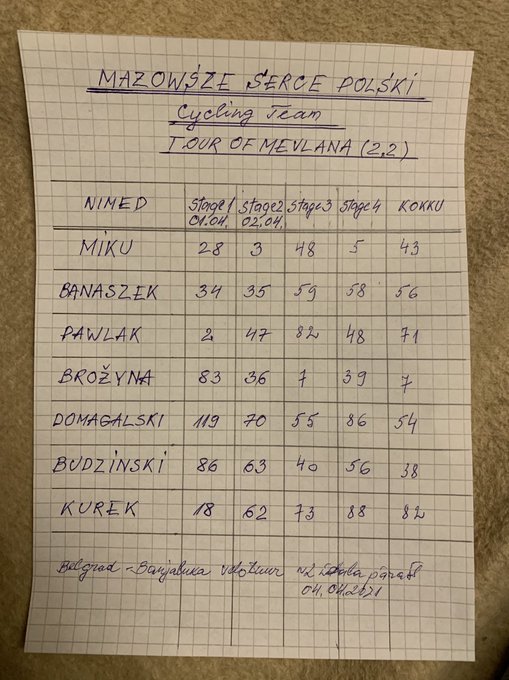 MAZOWSZE SERCE POLSKI
Cycling Team
TOUR OF MEVLANA (2,2)
NIMED Stage 1 01.04. Stage 2 02.04. Stage 3 Stage 4 KOKKU
MIKU 28 3 48 5 43
BANASZEK 34 35 59 58 56
PAWLAK 2 47 82 48 71
BROŽYNA 83 36 7 39 7
DOMAGALSKI 119 70 55 86 54
BUDZINSKI 86 63 40 56 38
KUREK 18 62 73 88 82
Belgrad - Banjaluka velotuur pärast
04.04.2021